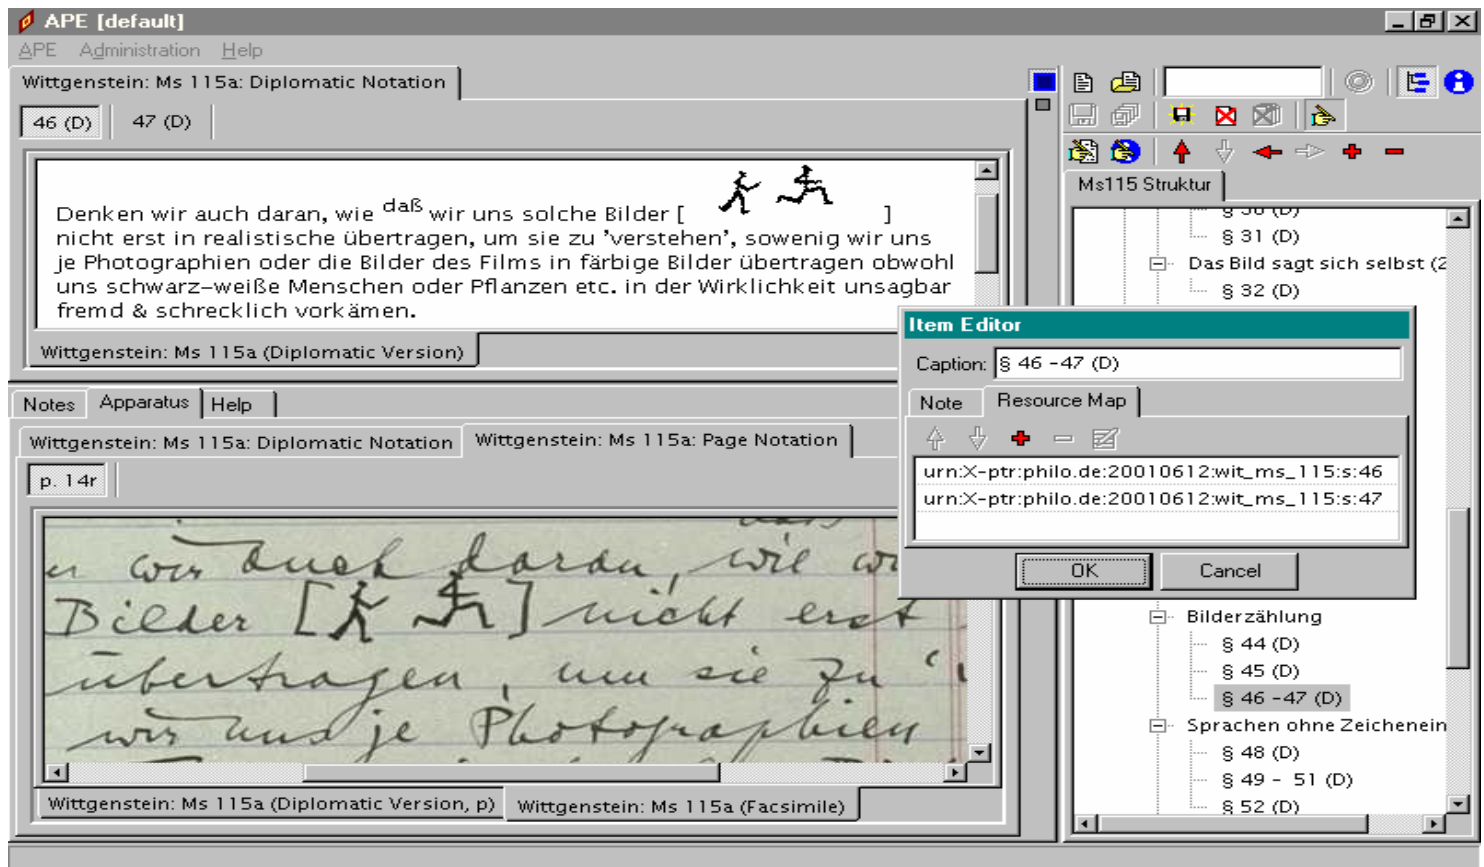 APE [default]
APE Administration Help
Wittgenstein: Ms 115a: Diplomatic Notation
46 (D) 47 (D)
Denken wir auch daran, wie daß wir uns solche Bilder [ ]
nicht erst in realistische übertragen, um sie zu 'verstehen', sowenig wir uns
je Photographien oder die Bilder des Films in färbige Bilder übertragen obwohl
uns schwarz-weiße Menschen oder Pflanzen etc. in der Wirklichkeit unsagbar
fremd & schrecklich vorkämen.
Wittgenstein: Ms 115a (Diplomatic Version)
Notes Apparatus Help
Wittgenstein: Ms 115a: Diplomatic Notation Wittgenstein: Ms 115a: Page Notation
p. 14r
wir auch daran, wie
Bilder [ ] nicht erst
übertragen, um sie zu
wir uns je Photographien
Wittgenstein: Ms 115a (Diplomatic Version, p) Wittgenstein: Ms 115a (Facsimile)
Ms115 Struktur
§ 30 (D)
§ 31 (D)
Das Bild sagt sich selbst (2
§ 32 (D)
Item Editor
Caption: § 46 -47 (D)
Note Resource Map
urn:X-ptr:philo.de:20010612:wit_ms_115:s:46
urn:X-ptr:philo.de:20010612:wit_ms_115:s:47
OK Cancel
Bilderzählung
§ 44 (D)
§ 45 (D)
§ 46 -47 (D)
Sprachen ohne Zeichenein
§ 48 (D)
§ 49 - 51 (D)
§ 52 (D)